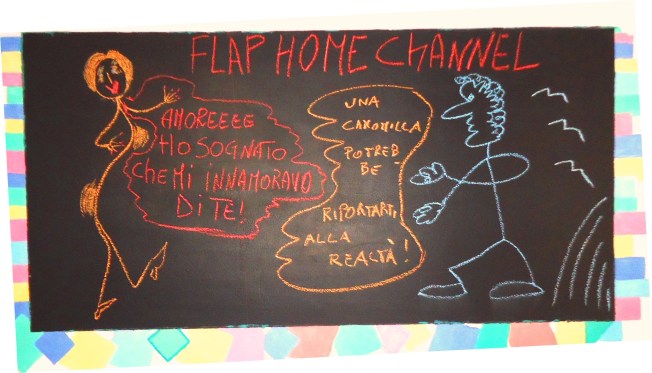 FLAP HOME CHANNEL
AMOREEEE
HO SOGNATO
CHE MI INNAMORAVO
DI TE!
UNA
CAMOMILLA
POTREB_
BE
RIPORTARTI
ALLA
REALTÀ!